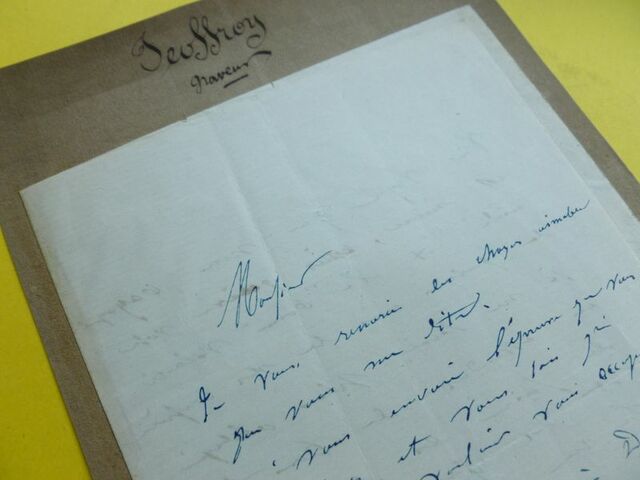 Geoffroy
graveur
Monsieur
Je vous remercie des choses aimables
que vous me dites.
vous envoie l'épreuve que vous
et vous sais gré
vouloir vous occup
à D